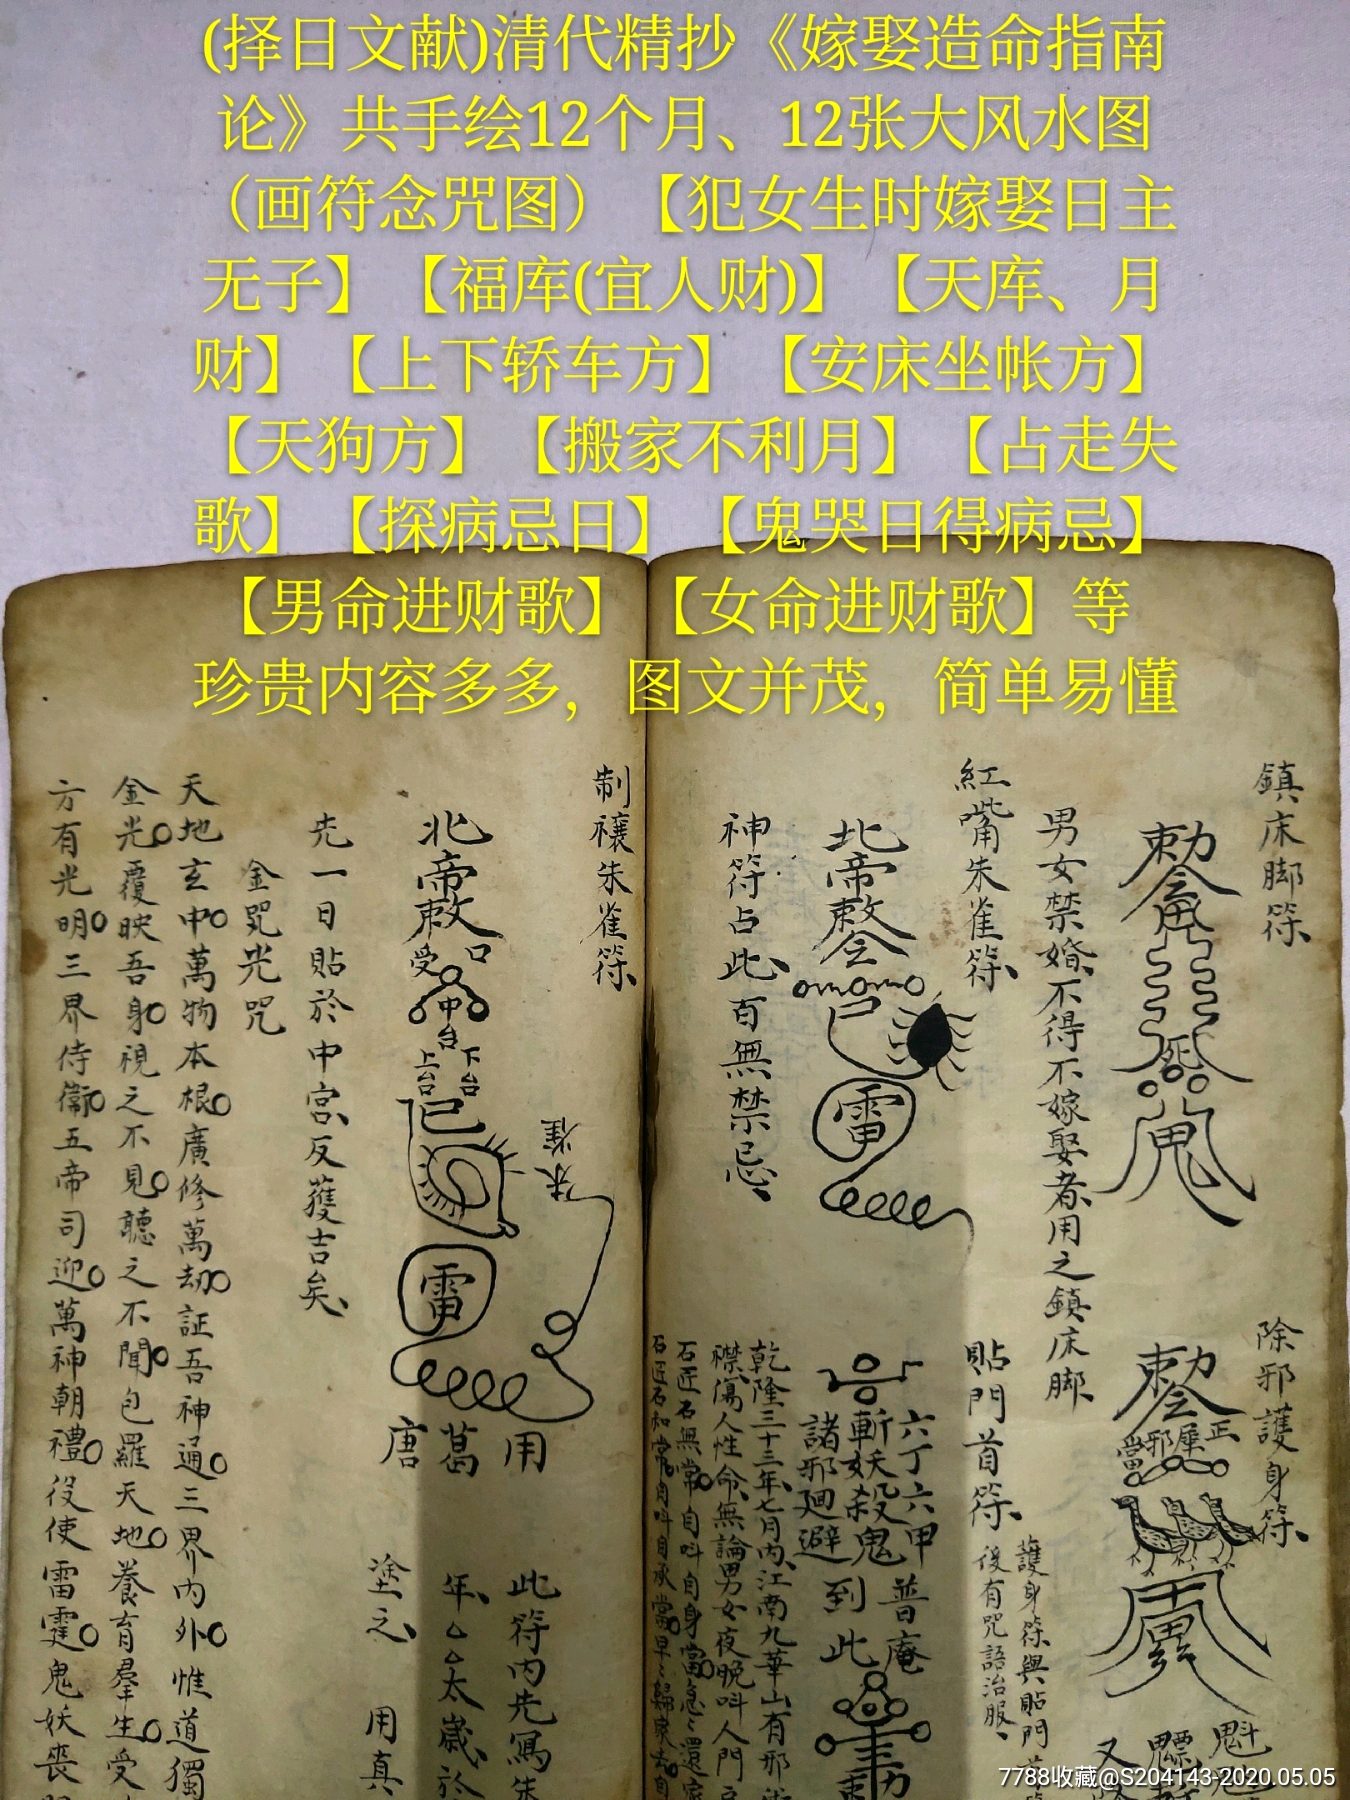 (择日文献)清代精抄《嫁娶造命指南
论》共手绘12个月、12张大风水图
（画符念咒图）【犯女生时嫁娶日主
无子】【福库(宜人财)】【天库、月
财】【上下轿车方】【安床坐帐方】
【天狗方】【搬家不利月】【占走失
歌】【探病忌日】【鬼哭日得病忌】
【男命进财歌】【女命进财歌】等
珍贵内容多多，图文并茂，简单易懂
鎮床脚符
男女禁婚不得不嫁娶者用之鎮床脚
除邪護身符
貼門首符
護身符與貼門首
後有咒語治服
紅嘴朱雀符
北帝敕令
雷
神符占此百無禁忌
六丁六甲普庵
斬妖殺鬼到此
諸邪廻避
乾隆三十三年七月內江南九華山有邪術
襟傷人性命無論男女夜晚叫人門
石匠石無常自叫自身當急急還家
石匠石和常自叫自承當早早歸家去自
制禳朱雀符
北帝敕
受
中台
上台
下台
朱雀
雷
唐
葛
用
此符內先寫朱
年太歲於
塗之
用真
先一日貼於中宮反獲吉矣
金咒光咒
天地玄中萬物本根廣修萬劫証吾神通三界內外惟道獨
金光覆映吾身視之不見聽之不聞包羅天地養育羣生受
方有光明三界侍衛五帝司迎萬神朝禮役使雷霆鬼妖喪
7788收藏@S204143-2020.05.05